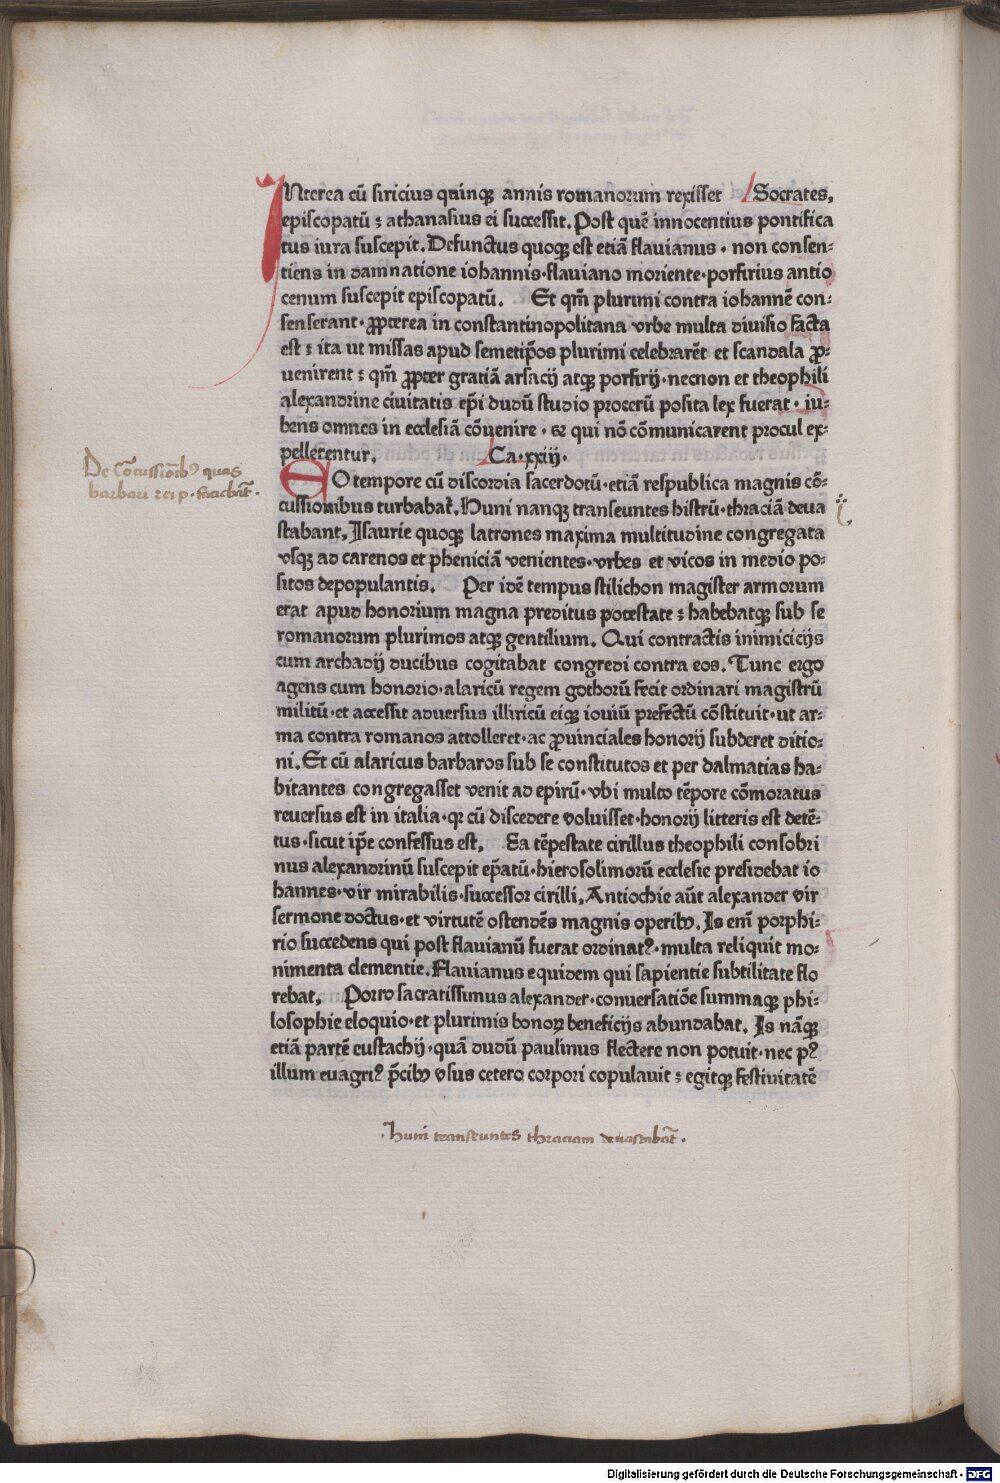 INterea cū siricius quinqꝫ annis romanorum rexisset Socrates,
episcopatū : athanasius ei successit. Post quē innocentius pontifica
tus iura suscepit. Defunctus quoqꝫ est etiā flauianus · non consen-
tiens in damnatione iohannis · flauiano moriente · porfirius antio
cenum suscepit episcopatū. Et qm̄ plurimi contra iohannē con-
senserant · ꝓpterea in constantinopolitana vrbe multa diuisio facta
est : ita ut missas apud semetip̄os plurimi celebrarēt et scandala ꝓ-
uenirent : qm̄ ꝓpter gratiā arsacij atqꝫ porfirij · necnon et theophili
alexandrine ciuitatis ep̄i dudū studio procerū posita lex fuerat · iu-
bens omnes in ecclesiā cōuenire · et qui nō cōmunicarent procul ex-
pellerentur. Ca · xxiij ·
De Cōcussiōibꝰ quas
barbari rei p · faciebāt ·
EO tempore cū discordia sacerdotū · etiā respublica magnis cō-
cussionibus turbabat̄. Huni nanqꝫ transeuntes histrū · thraciā deua
stabant. Isaurie quoqꝫ latrones maxima multitudine congregata
vsqꝫ ad carenos et pheniciā venientes · vrbes et vicos in medio po-
sitos depopulantis. Per idē tempus stilichon magister armorum
erat apud honorium magna preditus potestate : habebatqꝫ sub se
romanorum plurimos atqꝫ gentilium. Qui contractis inimicicijs
cum archadij ducibus cogitabat congredi contra eos. Tunc ergo
agens cum honorio · alaricū regem gothorū fecit ordinari magistrū
militū · et accessit aduersus illiricū eiqꝫ iouiū prefectū cōstituit · ut ar-
ma contra romanos attolleret · ac ꝓuinciales honorij subderet ditio-
ni. Et cū alaricus barbaros sub se constitutos et per dalmatias ha-
bitantes congregasset venit ad epirū · vbi multo tēpore cōmoratus
reuersus est in italia · qꝛ cū discedere voluisset · honorij litteris est detē-
tus · sicut ip̄e confessus est. Ea tēpestate cirillus theophili consobri
nus alexandrinū suscepit ep̄atū · hierosolimorū ecclesie presidebat io
hannes · vir mirabilis · successor cirilli. Antiochie aūt alexander vir
sermone doctus · et virtutē ostendēs magnis operibꝫ. Is em̄ porphi-
rio succedens qui post flauianū fuerat ordinatꝰ · multa reliquit mo-
nimenta clementie. Flauianus equidem qui sapientie subtilitate flo
rebat. Porro sacratissimus alexander · conuersatiōe summaqꝫ phi-
losophie eloquio · et plurimis bonoꝝ beneficijs abundabat. Is nāqꝫ
etiā partē eustachij · quā dudū paulinus flectere non potuit · nec pꝰ
illum euagriꝰ p̄cibꝫ vsus cetero corpori copulauit : egitqꝫ festiuitatē
· Huni transeuntes thraciam deuastabāt ·
Digitalisierung gefördert durch die Deutsche Forschungsgemeinschaft - DFG